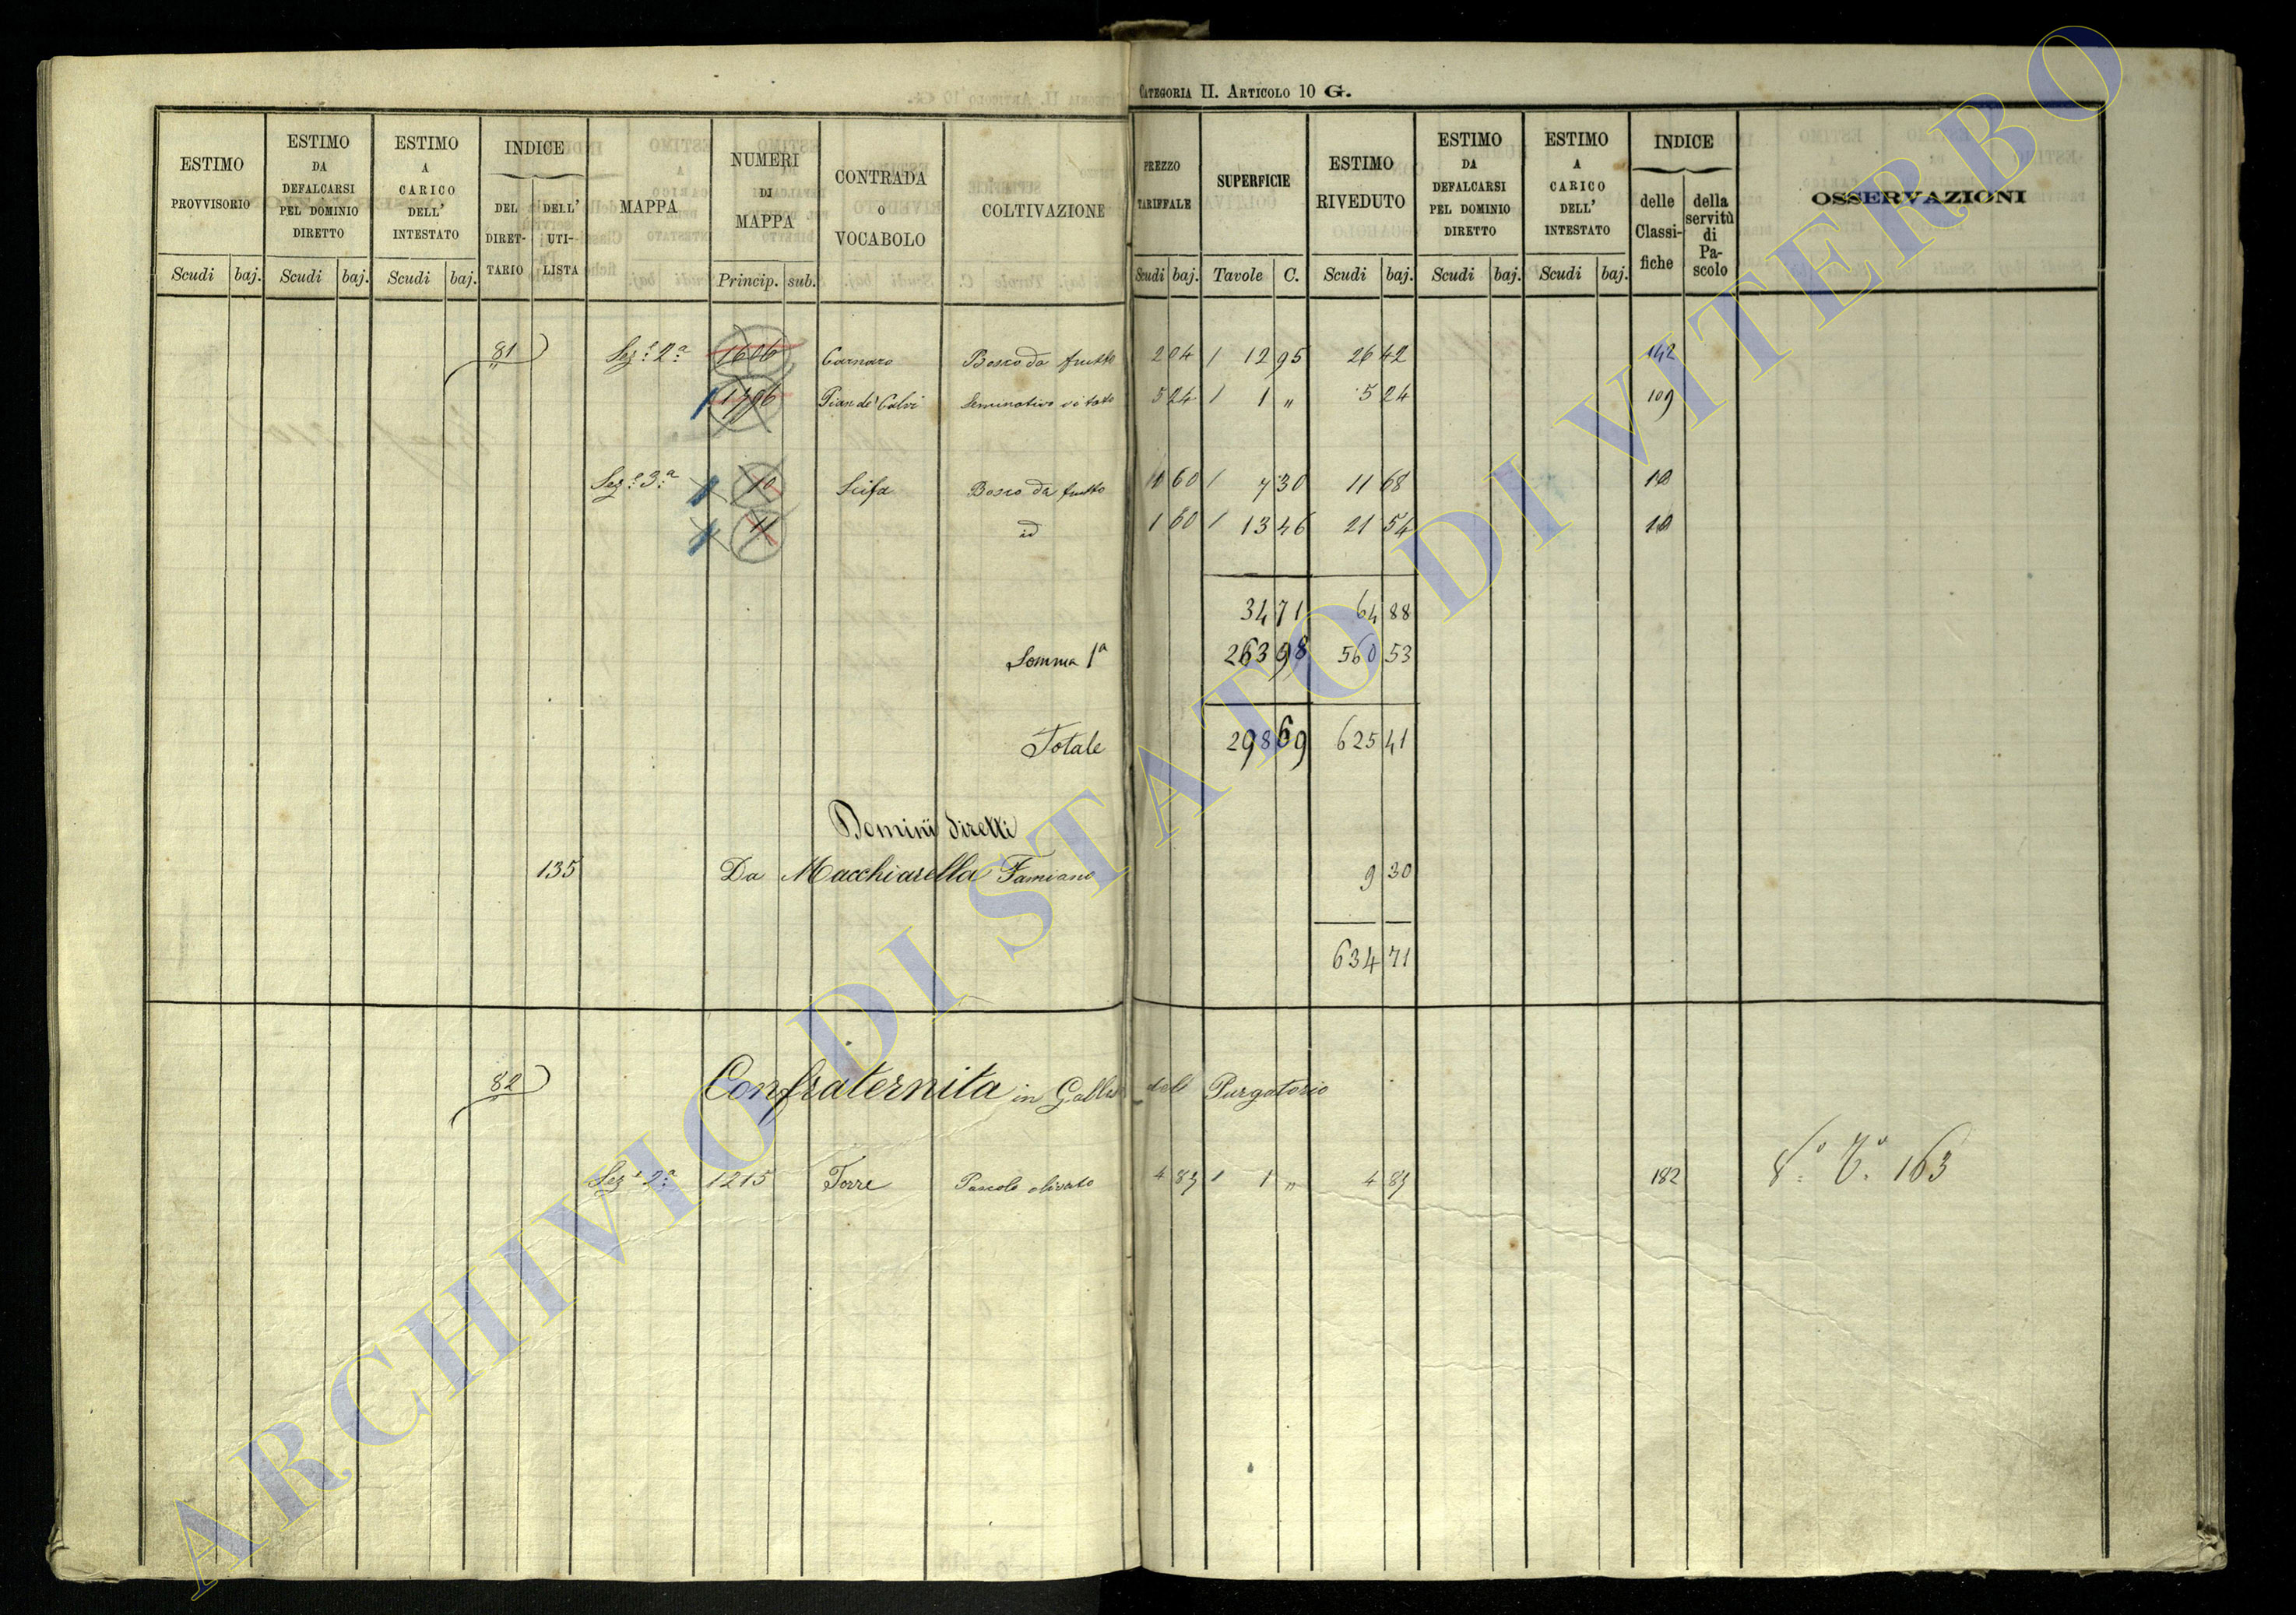 CATEGORIA II. ARTICOLO 10 G.
ESTIMO PROVVISORIO Scudi baj.
ESTIMO DA DEFALCARSI PEL DOMINIO DIRETTO Scudi baj.
ESTIMO A CARICO DELL' INTESTATO Scudi baj.
INDICE DEL DIRET-TARIO DELL' UTI-LISTA
MAPPA
NUMERI DI MAPPA Princip. sub.
CONTRADA O VOCABOLO
COLTIVAZIONE
PREZZO TARIFFALE Scudi baj.
SUPERFICIE Tavole C.
ESTIMO RIVEDUTO Scudi baj.
ESTIMO DA DEFALCARSI PEL DOMINIO DIRETTO Scudi baj.
ESTIMO A CARICO DELL' INTESTATO Scudi baj.
INDICE delle Classi-fiche della servitù di Pa-scolo
OSSERVAZIONI
81 Sez.e 2.a 1606 Carnaro Bosco da frutto 2 04 / 12 95 26 42 142
1796 Pian de' Calvi Seminativo vitato 5 24 / 1 " 5 24 109
Sez.e 3.a 10 Scifa Bosco da frutto 1 60 / 7 30 11 68 10
11 id 1 60 / 13 46 21 54 10
34 71 64 88
Somma 1a 263 98 560 53
Totale 298 69 625 41
Dominii diretti
135 Da Macchiarella Famiano 9 30
634 71
82 Confraternita in Gallese del Purgatorio
Sez.e 2.a 1215 Torre Pascolo olivato 4 83 / 1 " 4 83 182 163
ARCHIVIO DI STATO DI VITERBO